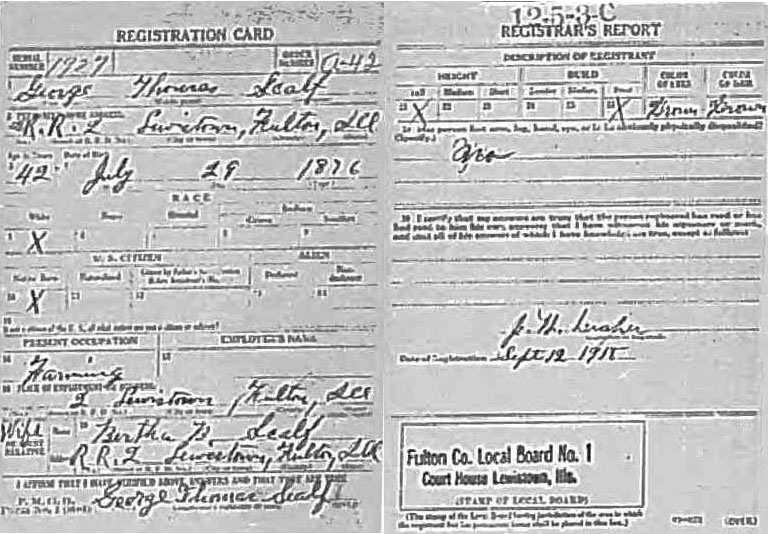 REGISTRATION CARD
SERIAL NUMBER 1927 ORDER NUMBER A-42
George Thomas Sealf
R.R. 2 Lewistown, Fulton, Ill
Age in Years Date of Birth
42 July 29 1876
RACE
White
X
U. S. CITIZEN ALIEN
Native Born Naturalized
10 X 11 12
PRESENT OCCUPATION EMPLOYER'S NAME
Farming
PLACE OF EMPLOYMENT OR BUSINESS
2 Lewistown, Fulton, Ill
Wife Name Bertha B. Sealf
NEAREST RELATIVE Address R.R. 2 Lewistown, Fulton, Ill
I AFFIRM THAT I HAVE VERIFIED ABOVE ANSWERS AND THAT THEY ARE TRUE
P. M. G. O.
George Thomas Sealf
12-5-3-C
REGISTRAR'S REPORT
DESCRIPTION OF REGISTRANT
HEIGHT BUILD COLOR OF EYES COLOR OF HAIR
Tall Medium Short Slender Medium Stout
21 X 22 23 24 25 X Brown Brown
Has person lost arm, leg, hand, eye, or is he obviously physically disqualified?
(Specify.)
30 I certify that my answers are true; that the person registered has read or has
had read to him his own answers; that I have witnessed his signature or mark,
and that all of his answers of which I have knowledge are true, except as follows:
Date of Registration Sept 12 1918
Fulton Co. Local Board No. 1
Court House Lewistown, Ills.
(STAMP OF LOCAL BOARD)
(The stamp of the Local Board having jurisdiction of the area in which
the registrant has his permanent home shall be placed in this box.)
(OVER)